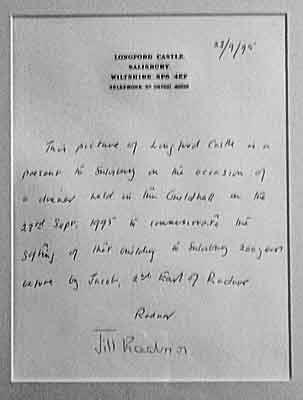 23/9/95
LONGFORD CASTLE,
SALISBURY,
WILTSHIRE SP5 4EF
TELEPHONE
This picture of Longford Castle is a
present to Salisbury on the occasion of
a dinner held in the Guildhall on the
23rd Sept. 1995 to commemorate the
gifting of that building to Salisbury 200 years
before by Jacob, 2nd Earl of Radnor
Radnor
Jill Radnor